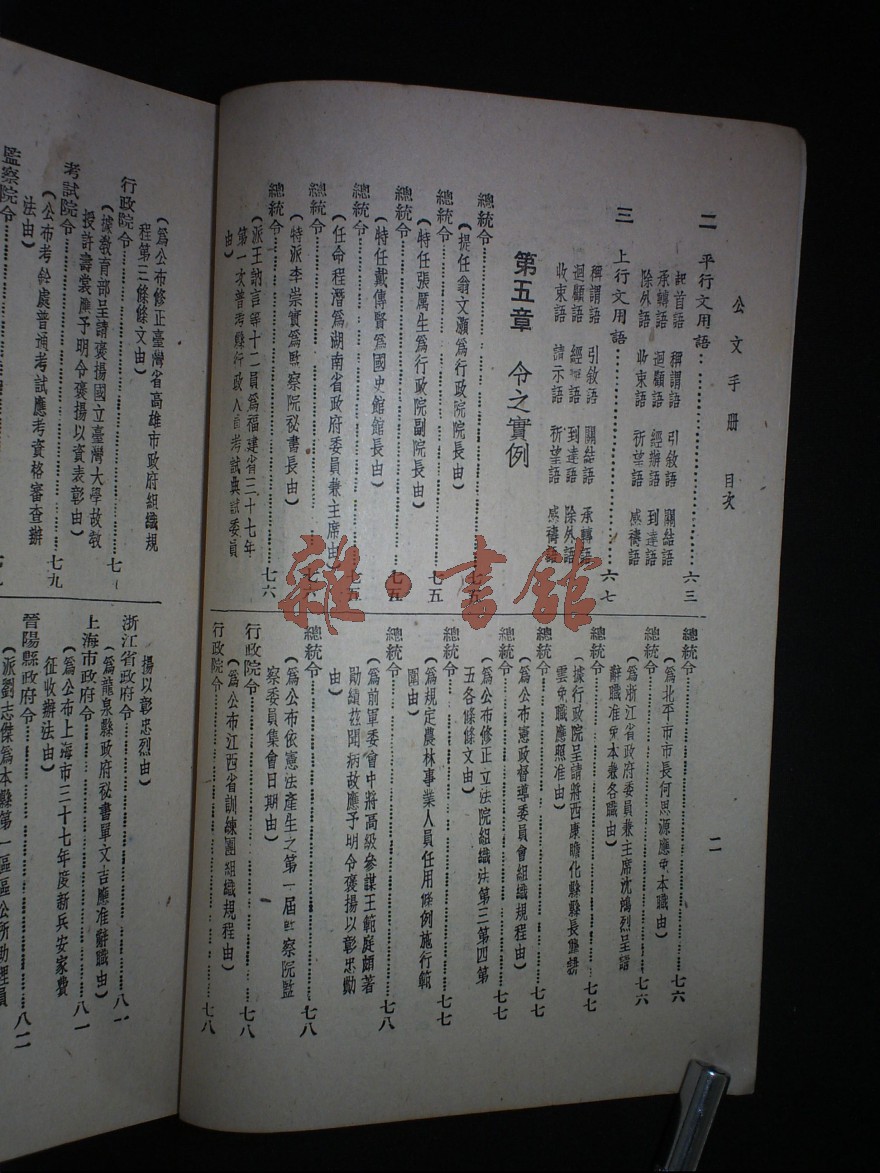 公文手册 目次
二
二 平行文用語……六三
起首語 稱謂語 引敘語 關結語
承轉語 迴顧語 經辦語 到達語
除外語 收束語 祈望語 感禱語
三 上行文用語……六七
稱謂語 引敘語 關結語 承轉語
迴顧語 經 語 到達語 除外語
收束語 請示語 祈望語 感禱語
第五章 令之實例
總統令……七五
(提任翁文灝爲行政院院長由)
總統令……七五
(特任張厲生爲行政院副院長由)
總統令……七五
(特任戴傳賢爲國史館館長由)
總統令……七五
(任命程潛爲湖南省政府委員兼主席由)
總統令……七六
(特派李崇實爲監察院秘書長由)
總統令……七六
(派王訥言等十二員爲福建省三十七年
第一次普考縣行政人員考試典試委員
由)
總統令……七六
(爲北平市市長何思源應免本職由)
總統令……七六
(爲浙江省政府委員兼主席沈鴻烈呈請
辭職准免本兼各職由)
總統令……七七
(據行政院呈請將西康瞻化縣縣長
雲免職應照准由)
總統令……七七
(爲公布憲政督導委員會組織規程由)
總統令……七七
(爲公布修正立法院組織法第三第四第
五各條條文由)
總統令……七七
(爲規定農林事業人員任用條例施行範
圍由)
總統令……七八
(爲前軍委會中將高級參謀王範庭頗著
勛績茲聞病故應予明令褒揚以彰忠勳
由)
總統令……七八
(爲公布依憲法產生之第一屆監察院監
察委員集會日期由)
行政院令……七八
(爲公布江西省訓練團組織規程由)
行政院令……七八
(爲公布修正臺灣省高雄市政府組織規
程第三條條文由)
行政院令……七
(據教育部呈請褒揚國立臺灣大學故教
授許壽裳應予明令褒揚以資表彰由)
考試院令……七九
(公布考銓處普通考試應考資格審查辦
法由)
監察院令……
揚以彰忠烈由)
浙江省政府令……八一
(爲龍泉縣政府祕書單文吉應准辭職由)
上海市政府令……八一
(爲公布上海市三十七年度新兵安家費
征收辦法由)
晉陽縣政府令……八二
(派劉志傑爲本縣第一區區公所助理員
雜·書館